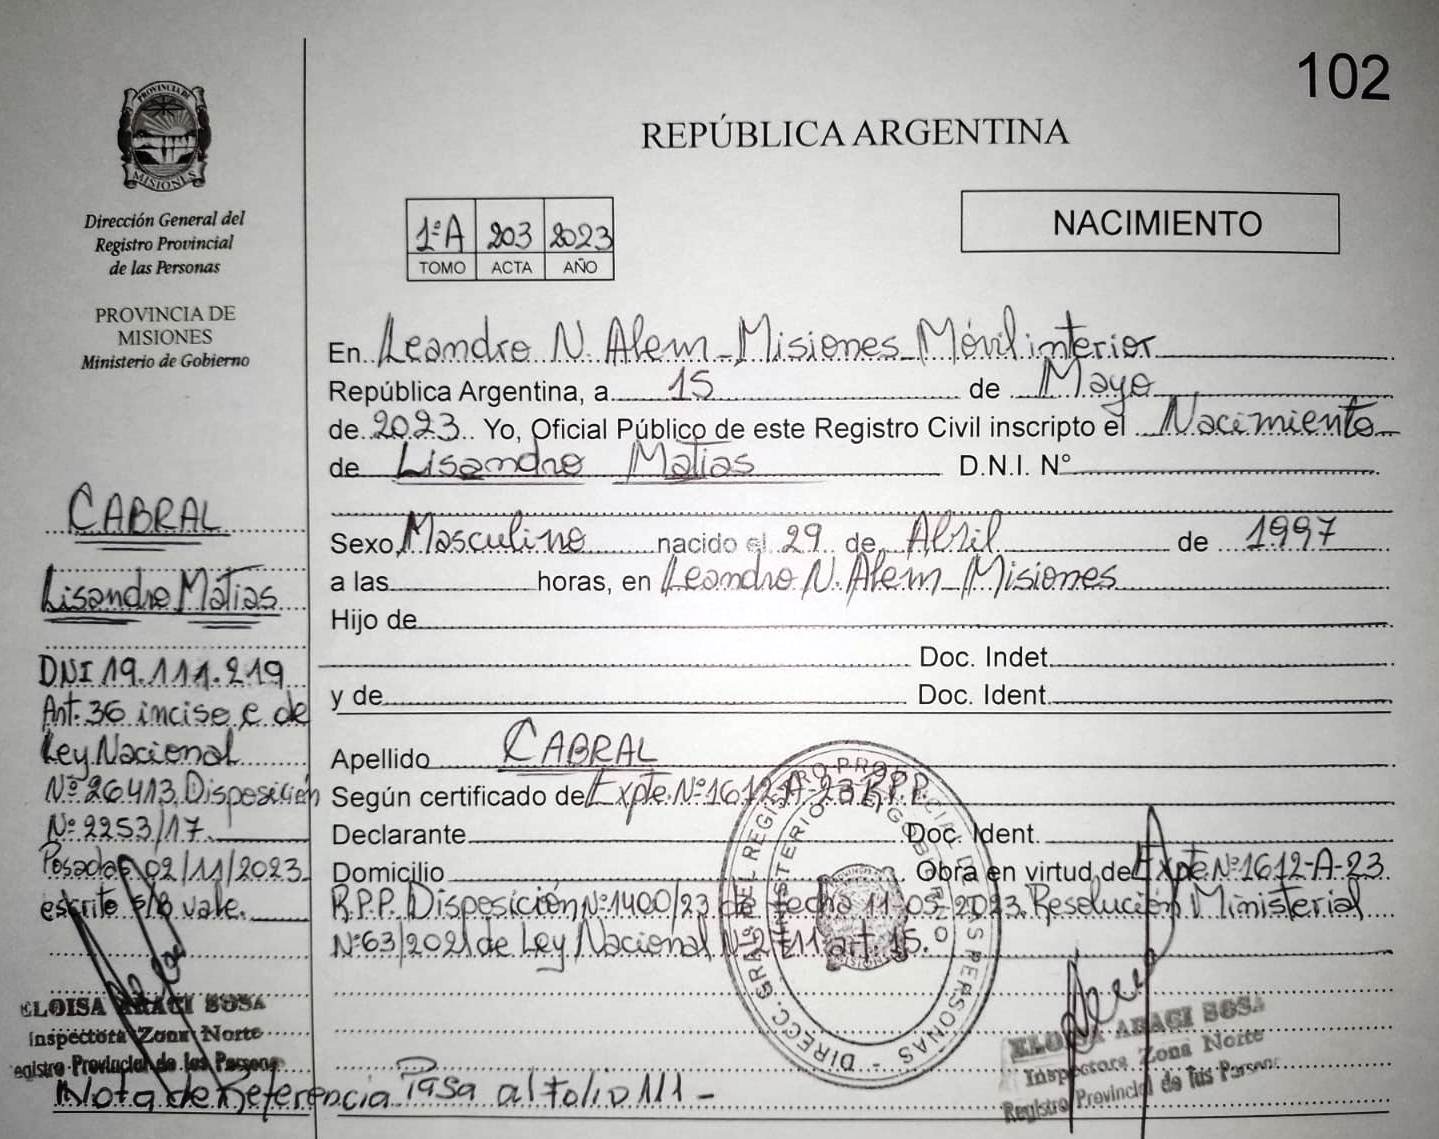 102
PROVINCIA DE
MISIONES
REPÚBLICA ARGENTINA
Dirección General del
Registro Provincial
de las Personas
PROVINCIA DE
MISIONES
Ministerio de Gobierno
1ºA 203 2023
TOMO ACTA AÑO
NACIMIENTO
En Leandro N. Alem - Misiones - Móvil interior
República Argentina, a 15 de Mayo
de 2023 Yo, Oficial Público de este Registro Civil inscripto el Nacimiento
de Lisandro Matias D.N.I. Nº
Sexo Masculino nacido el 29 de Abril de 1997
a las horas, en Leandro N. Alem - Misiones
Hijo de
Doc. Indet.
y de Doc. Ident.
Apellido CABRAL
Según certificado de Expte. Nº 1612-A-23 R.P.P.
Declarante Doc. Ident.
Domicilio Obra en virtud de Expte Nº 1612-A-23
R.P.P. Disposición Nº 1400/23 de fecha 11-05-2023. Resolución Ministerial
Nº 63/2021 de Ley Nacional art. 15.
CABRAL
Lisandro Matias
DNI 19.111.219
Art. 36 inciso e de
Ley Nacional
Nº 26.413. Disposición
Nº 2253/17.
Posadas 02/11/2023
escrito s/B vale.
ELOISA ARACI SOSA
Inspectora Zona Norte
egistro Provincial de las Persona
DIRECC. GRAL. DEL REGISTRO PROVINCIAL DE LAS PERSONAS
MINISTERIO DE GOBIERNO
ELOISA ARACI SOSA
Inspectora Zona Norte
Registro Provincial de las Person
Nota de Referencia Pasa al folio 111 -